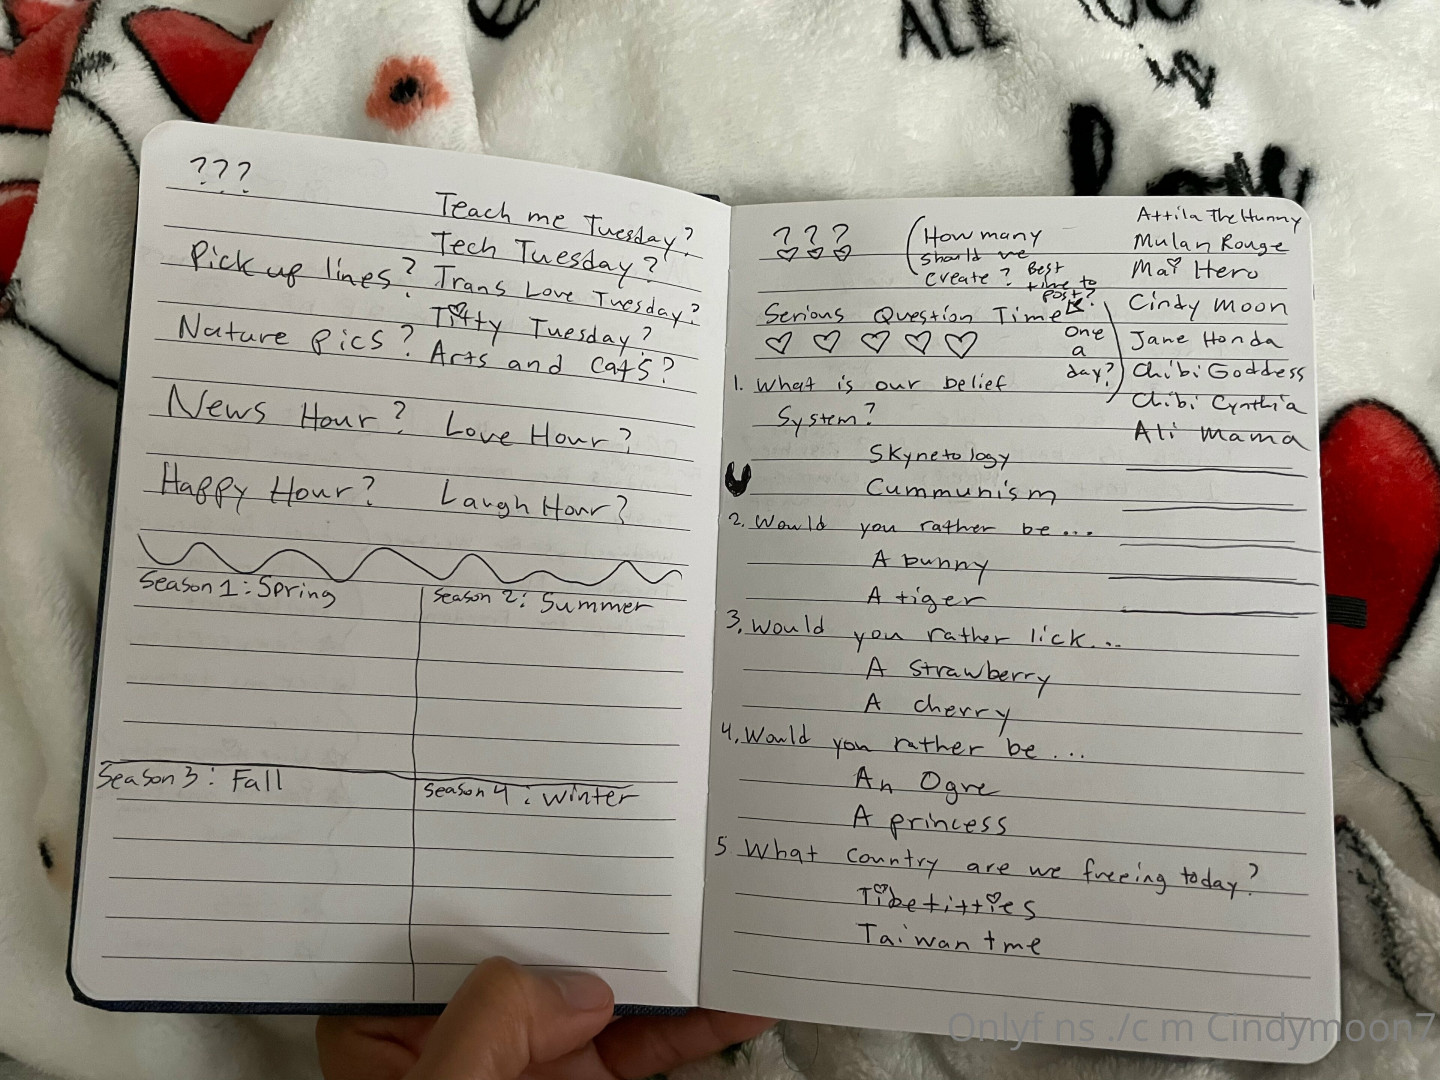 ALL
is
love
???
Teach me Tuesday?
Tech Tuesday?
Pick up lines?
Trans Love Tuesday?
Titty Tuesday?
Nature pics?
Arts and Cats?
News Hour?
Love Hour?
Happy Hour?
Laugh Hour?
Season 1: Spring
Season 2: Summer
Season 3: Fall
Season 4: Winter
???
(How many
should we
create? Best
time to
post?
Serious Question Time
One
a
day?)
1. What is our belief
System?
Skynetology
Cummunism
2. Would you rather be...
A bunny
A tiger
3. Would you rather lick...
A strawberry
A cherry
4. Would you rather be...
An Ogre
A princess
5 What country are we freeing today?
Tibetitties
Taiwantme
Attila The Hunny
Mulan Rouge
Mai Hero
Cindy Moon
Jane Honda
Chibi Goddess
Chibi Cynthia
Ali Mama
Onlyf ns ./c m Cindymoon7